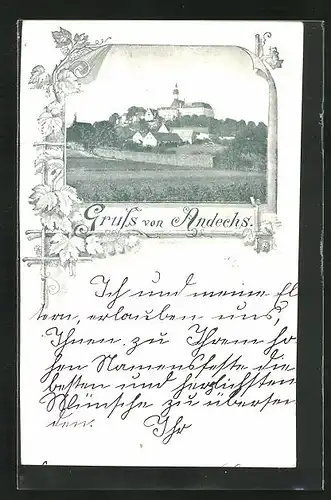 Gruß von Andechs.
Ich und meine El
tern, erlauben uns,
Ihnen zu Ihrem ho
hen Namensfeste die
besten und herzlichsten
Wünsche zu übersen
den. Ihr